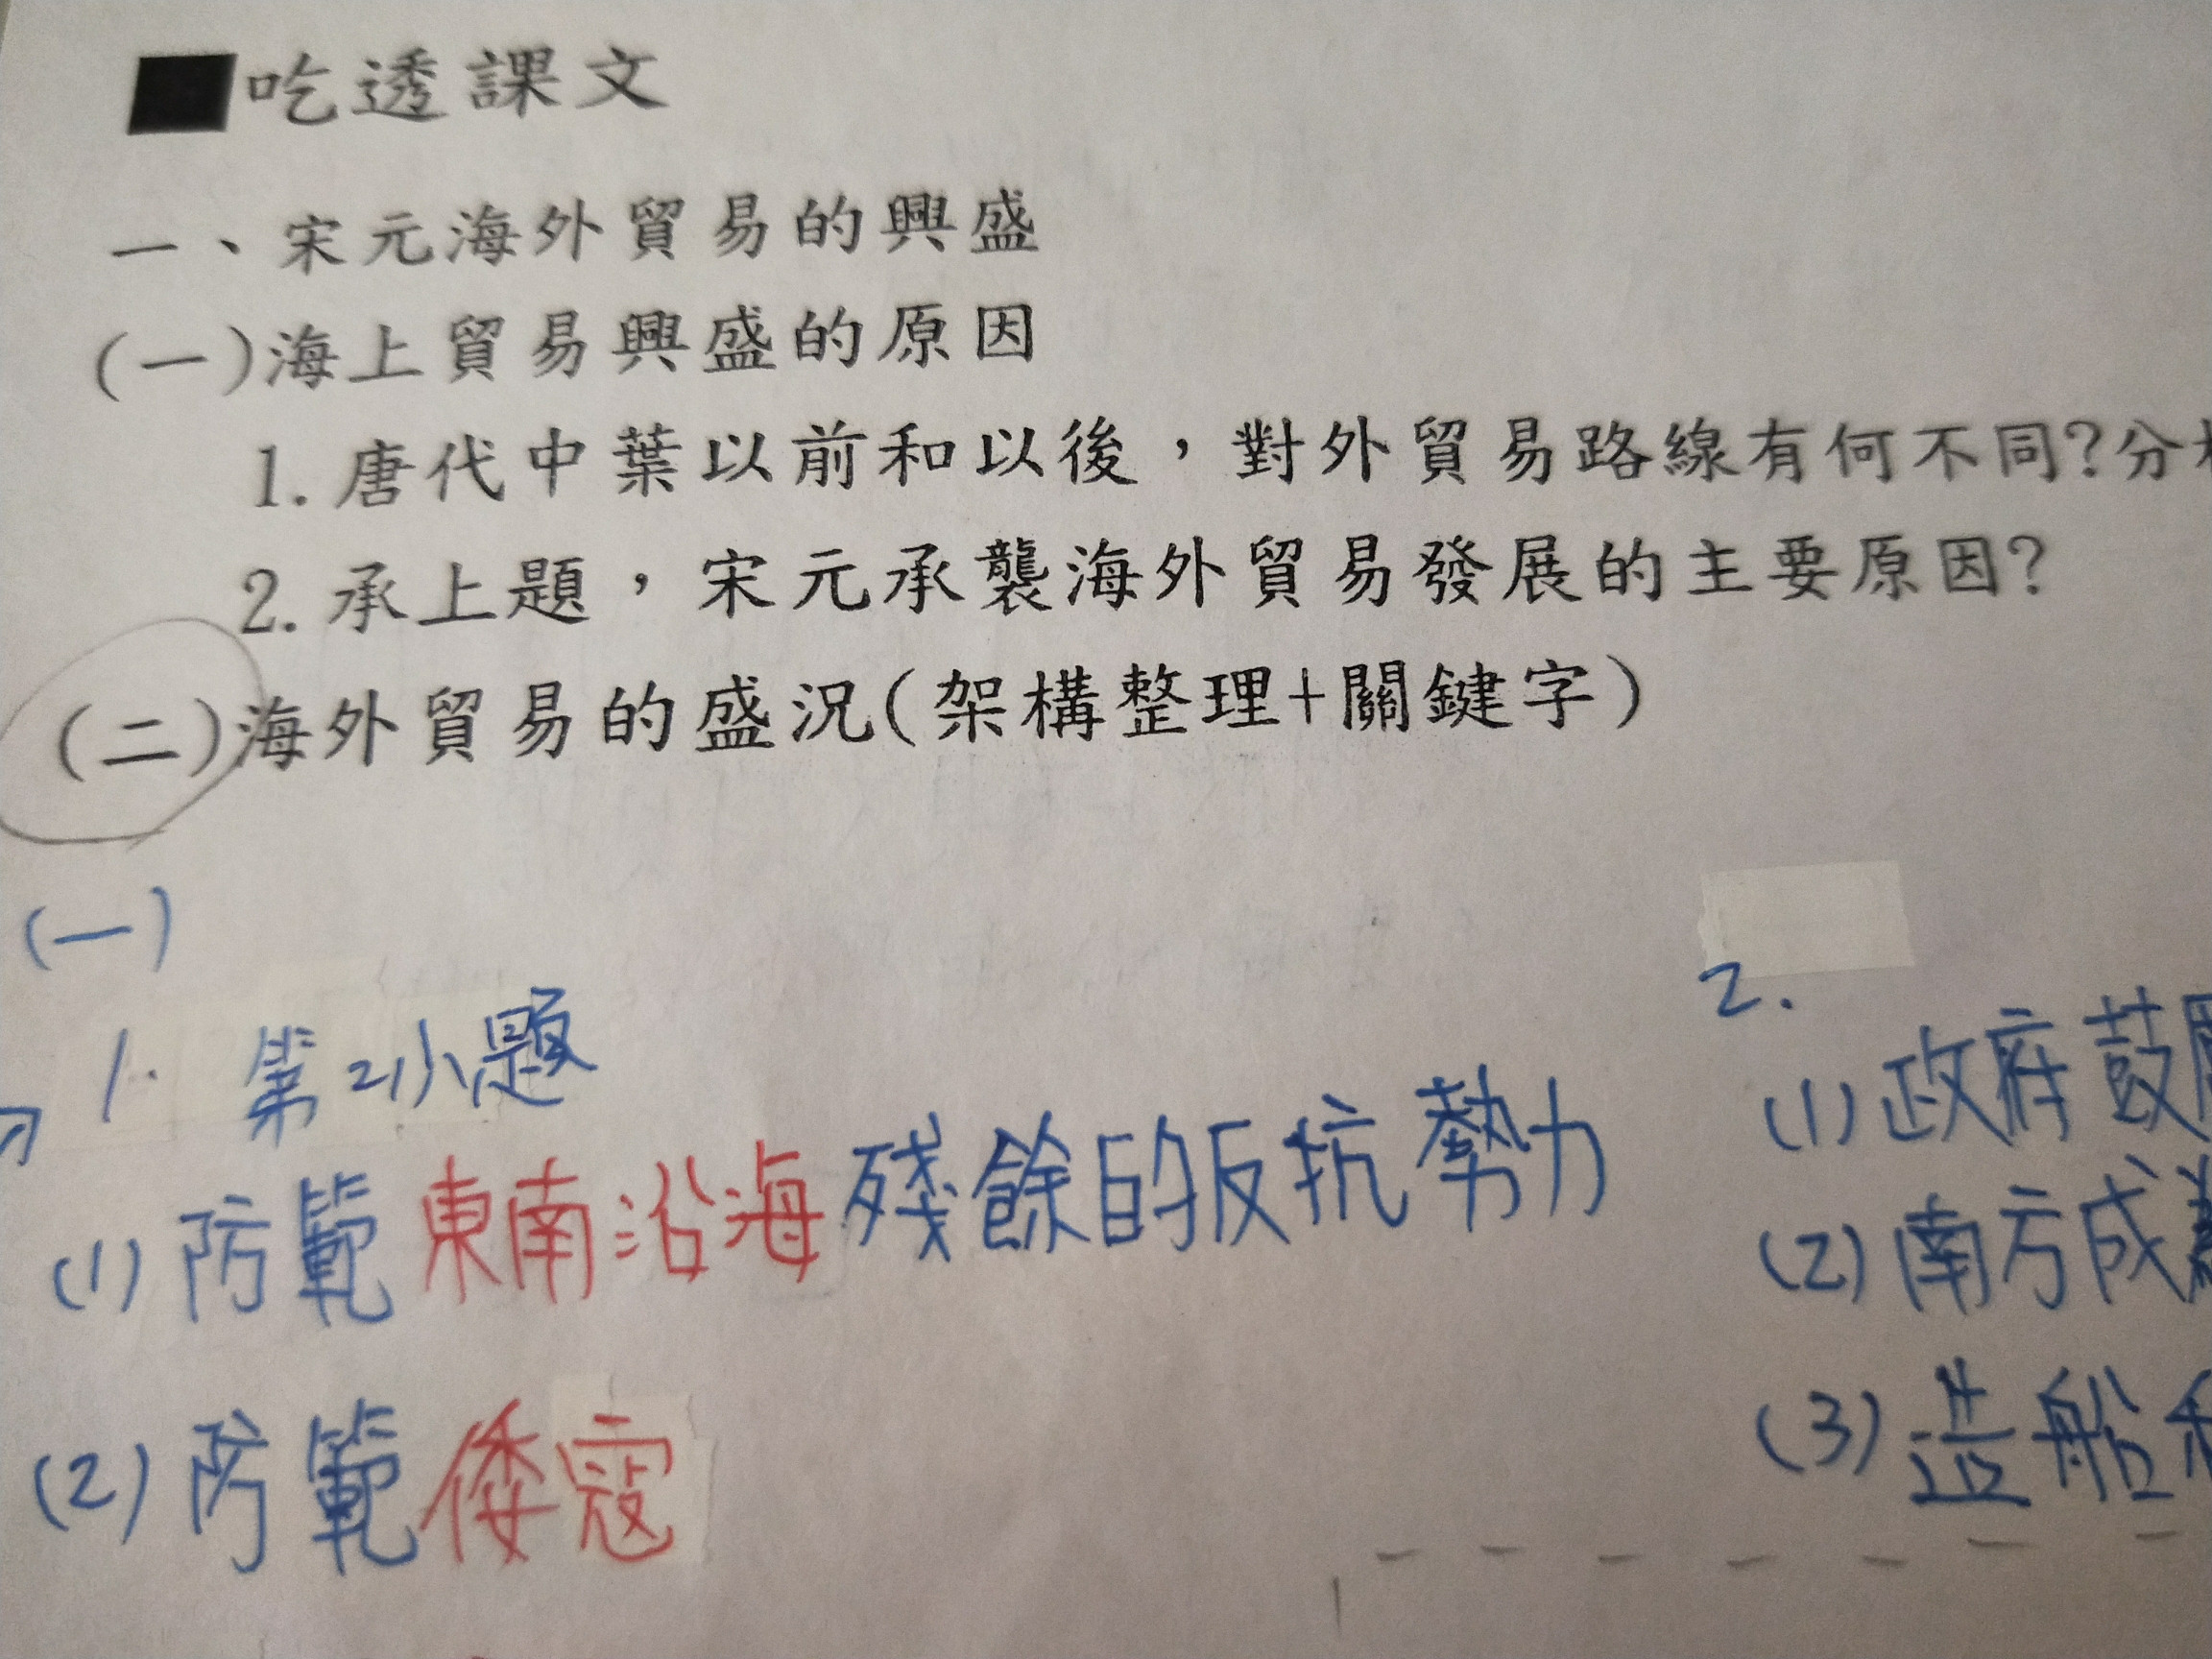 ■吃透課文
一、宋元海外貿易的興盛
(一)海上貿易興盛的原因
1.唐代中葉以前和以後，對外貿易路線有何不同?分
2.承上題，宋元承襲海外貿易發展的主要原因?
(二)海外貿易的盛況(架構整理+關鍵字)
(一)
1. 第2小題
(1)防範東南沿海殘餘的反抗勢力
(2)防範倭寇
2.
(1)政府鼓
(2)南方成
(3)造船